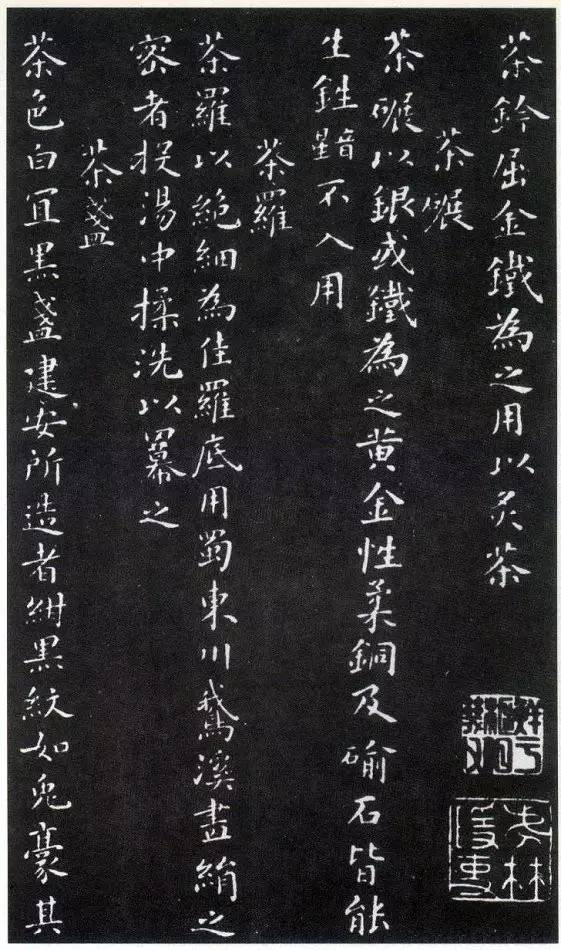 茶鈐屈金鐵為之用以炙茶
茶碾
茶碾以銀或鐵為之黃金性柔銅及碖石皆能
生鉎䵝不入用
茶羅
茶羅以絕細為佳羅底用蜀東川鵝溪畫絹之
密者投湯中揉洗以羃之
茶盞
茶色白宜黑盞建安所造者紺黑紋如兔豪其